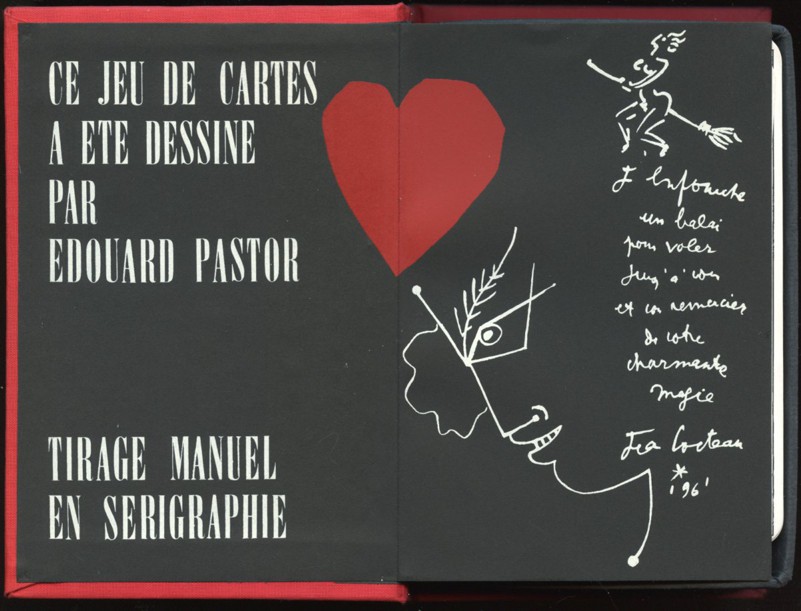 CE JEU DE CARTES
A ETE DESSINE
PAR
EDOUARD PASTOR
TIRAGE MANUEL
EN SERIGRAPHIE
J'enfourche
un balai
pour voler
jusqu'à vous
et vous remercier
de votre
charmante
magie
Jean Cocteau
1961